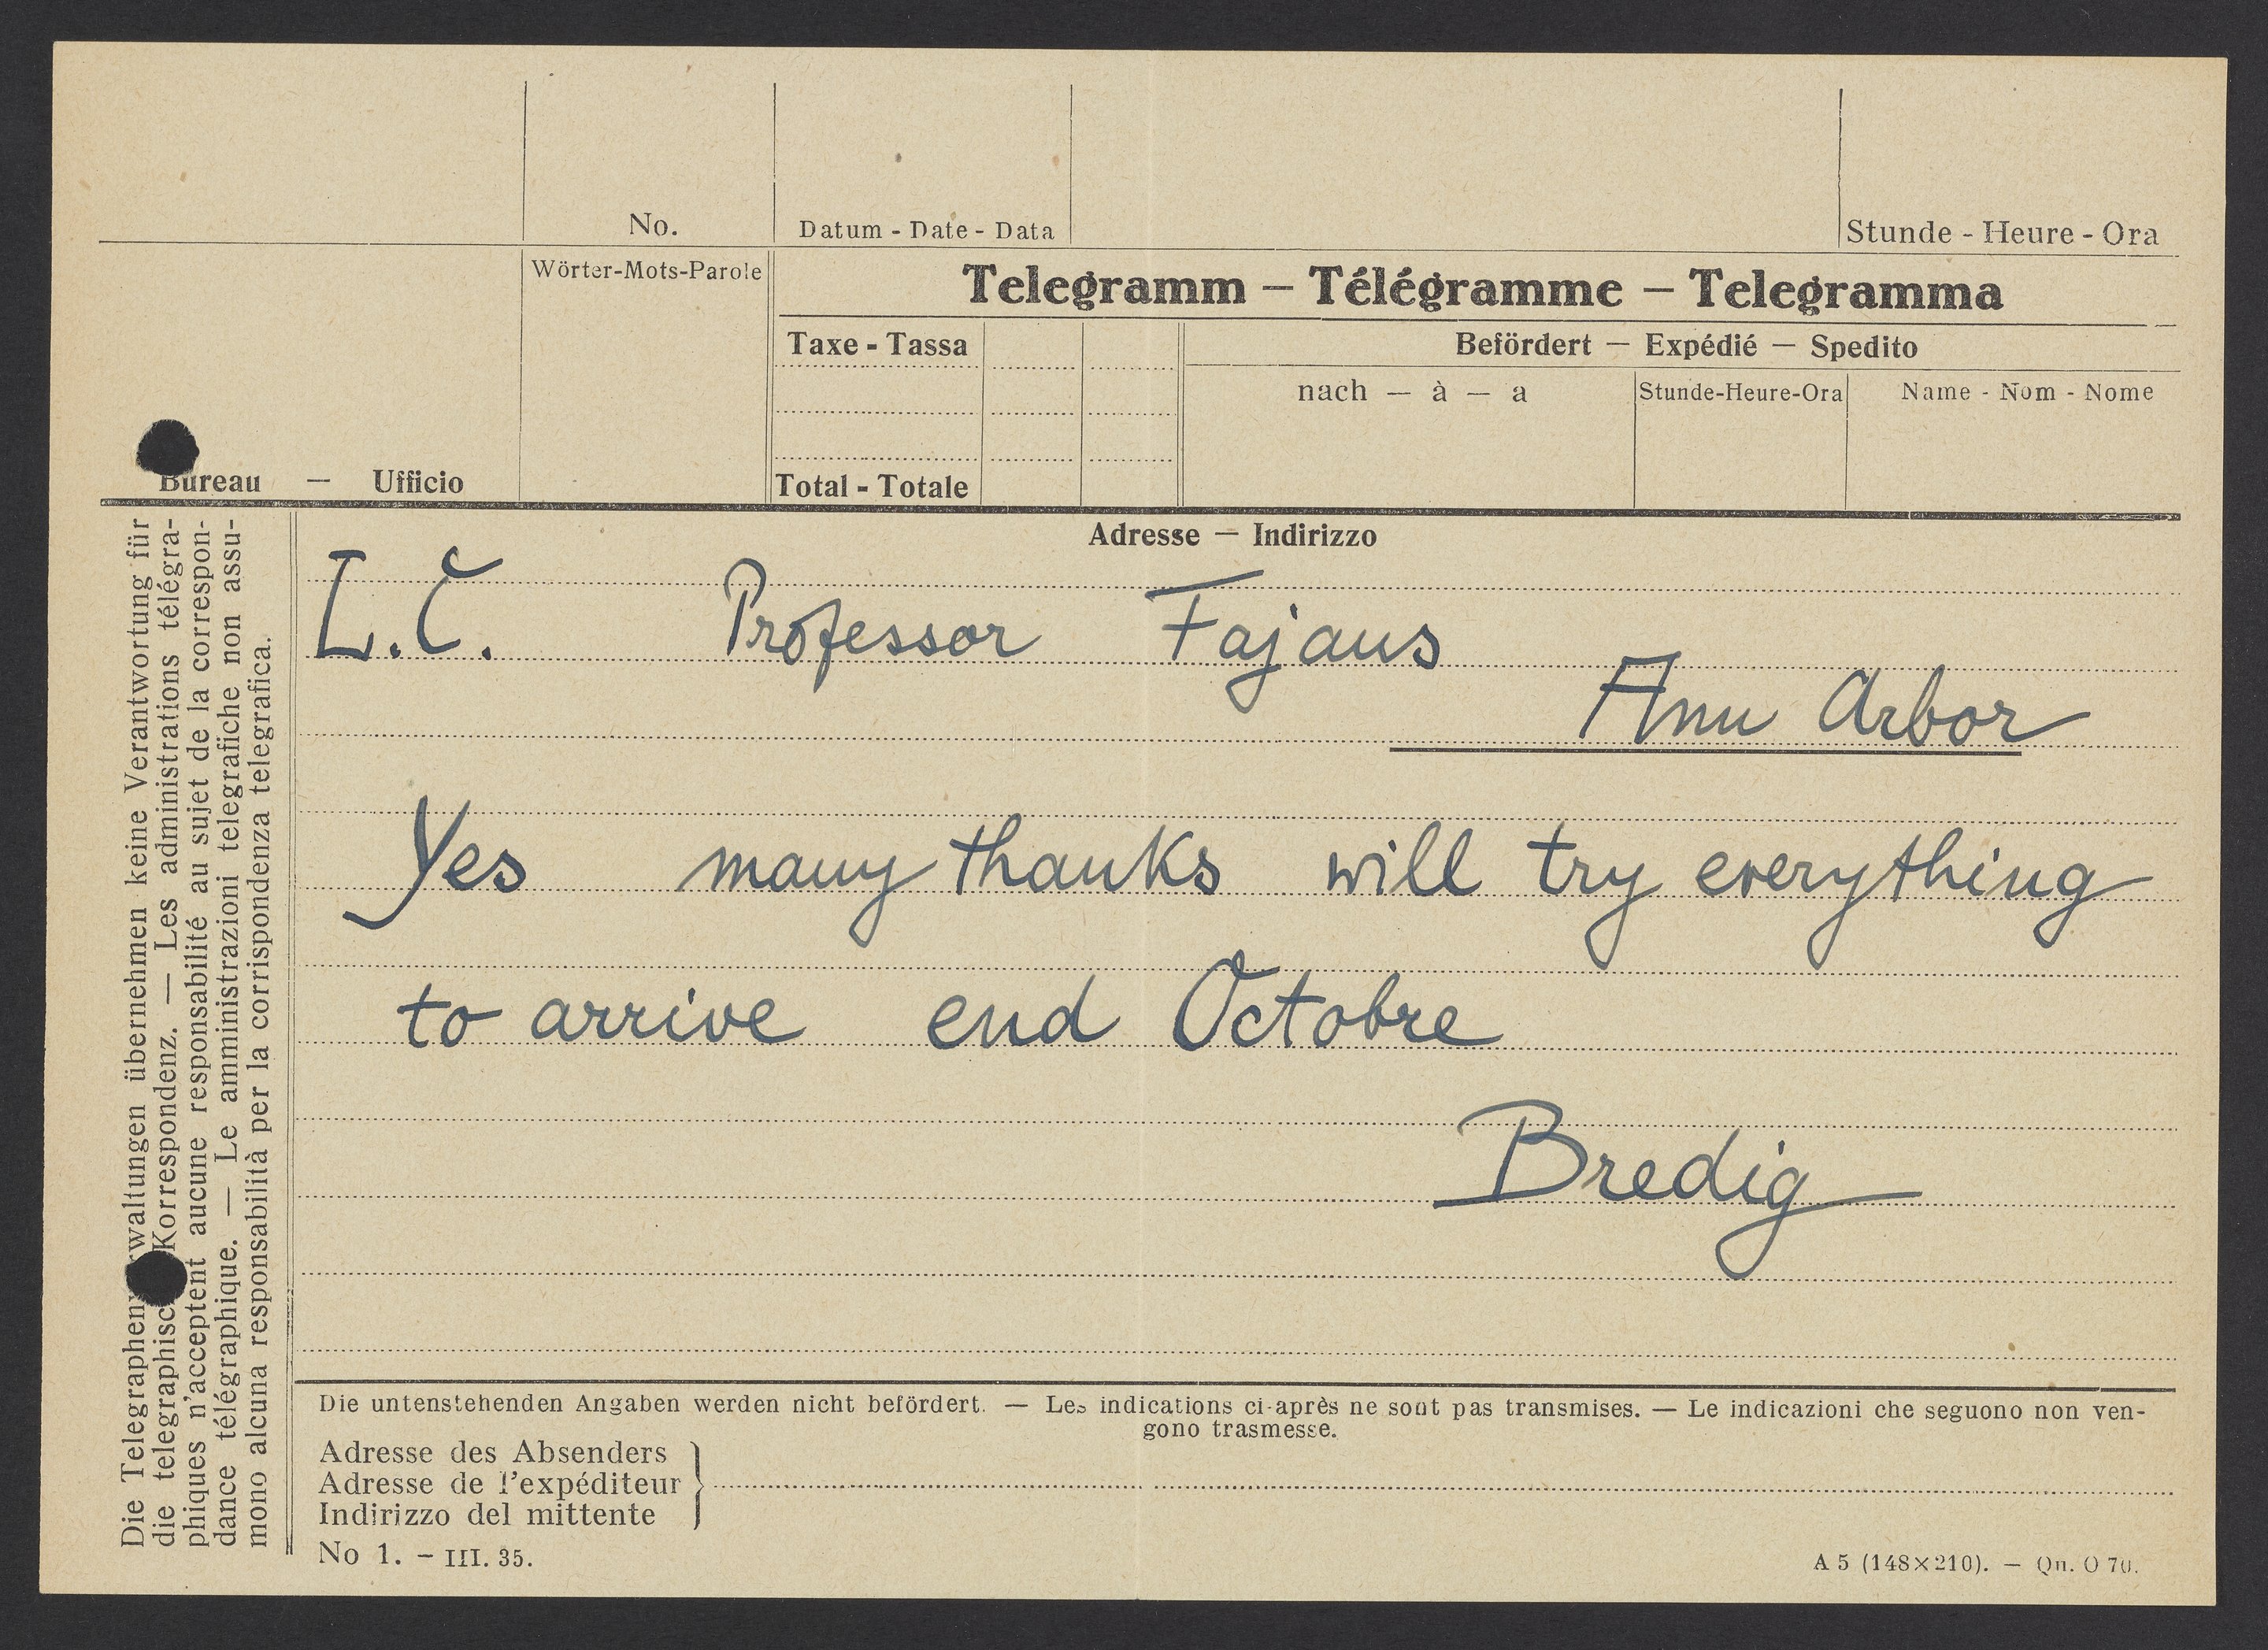 No.
Datum - Date - Data
Stunde - Heure - Ora
Wörter-Mots-Parole
Telegramm — Télégramme — Telegramma
Taxe - Tassa
Befördert — Expédié — Spedito
nach — à — a
Stunde-Heure-Ora
Name - Nom - Nome
Bureau — Ufficio
Total - Totale
Adresse — Indirizzo
L.C. Professor Fajans
Ann Arbor
Yes many thanks will try everything
to arrive end Octobre
Bredig
Die untenstehenden Angaben werden nicht befördert. — Les indications ci-après ne sont pas transmises. — Le indicazioni che seguono non ven-
gono trasmesse.
Adresse des Absenders
Adresse de l'expéditeur
Indirizzo del mittente
No 1. - III. 35.
A 5 (148×210). — Qn. O 70.
Die Telegraphenverwaltungen übernehmen keine Verantwortung für
die telegraphische Korrespondenz. — Les administrations télégra-
phiques n'acceptent aucune responsabilité au sujet de la correspon-
dance télégraphique. — Le amministrazioni telegrafiche non assu-
mono alcuna responsabilità per la corrispondenza telegrafica.